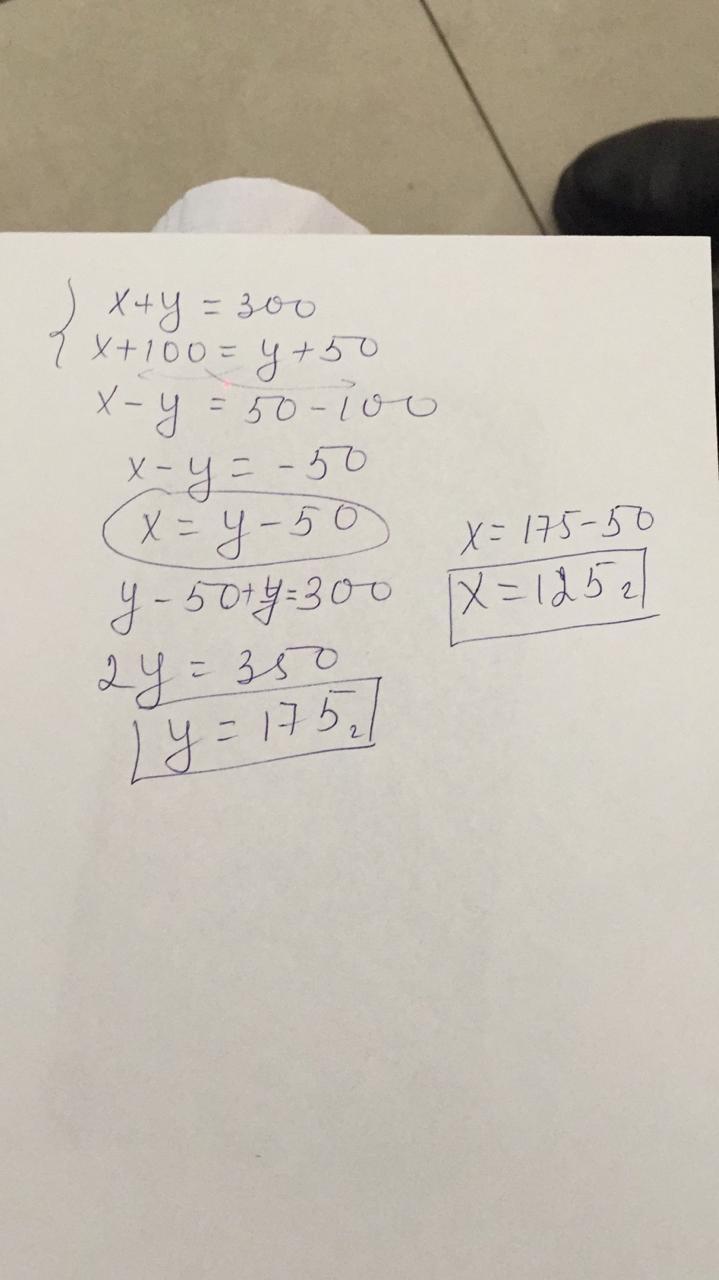 { x+y = 300
x+100 = y+50
x-y = 50-100
x-y = -50
x = y-50
y-50+y=300
2y = 350
y = 175г
x = 175-50
x = 125г